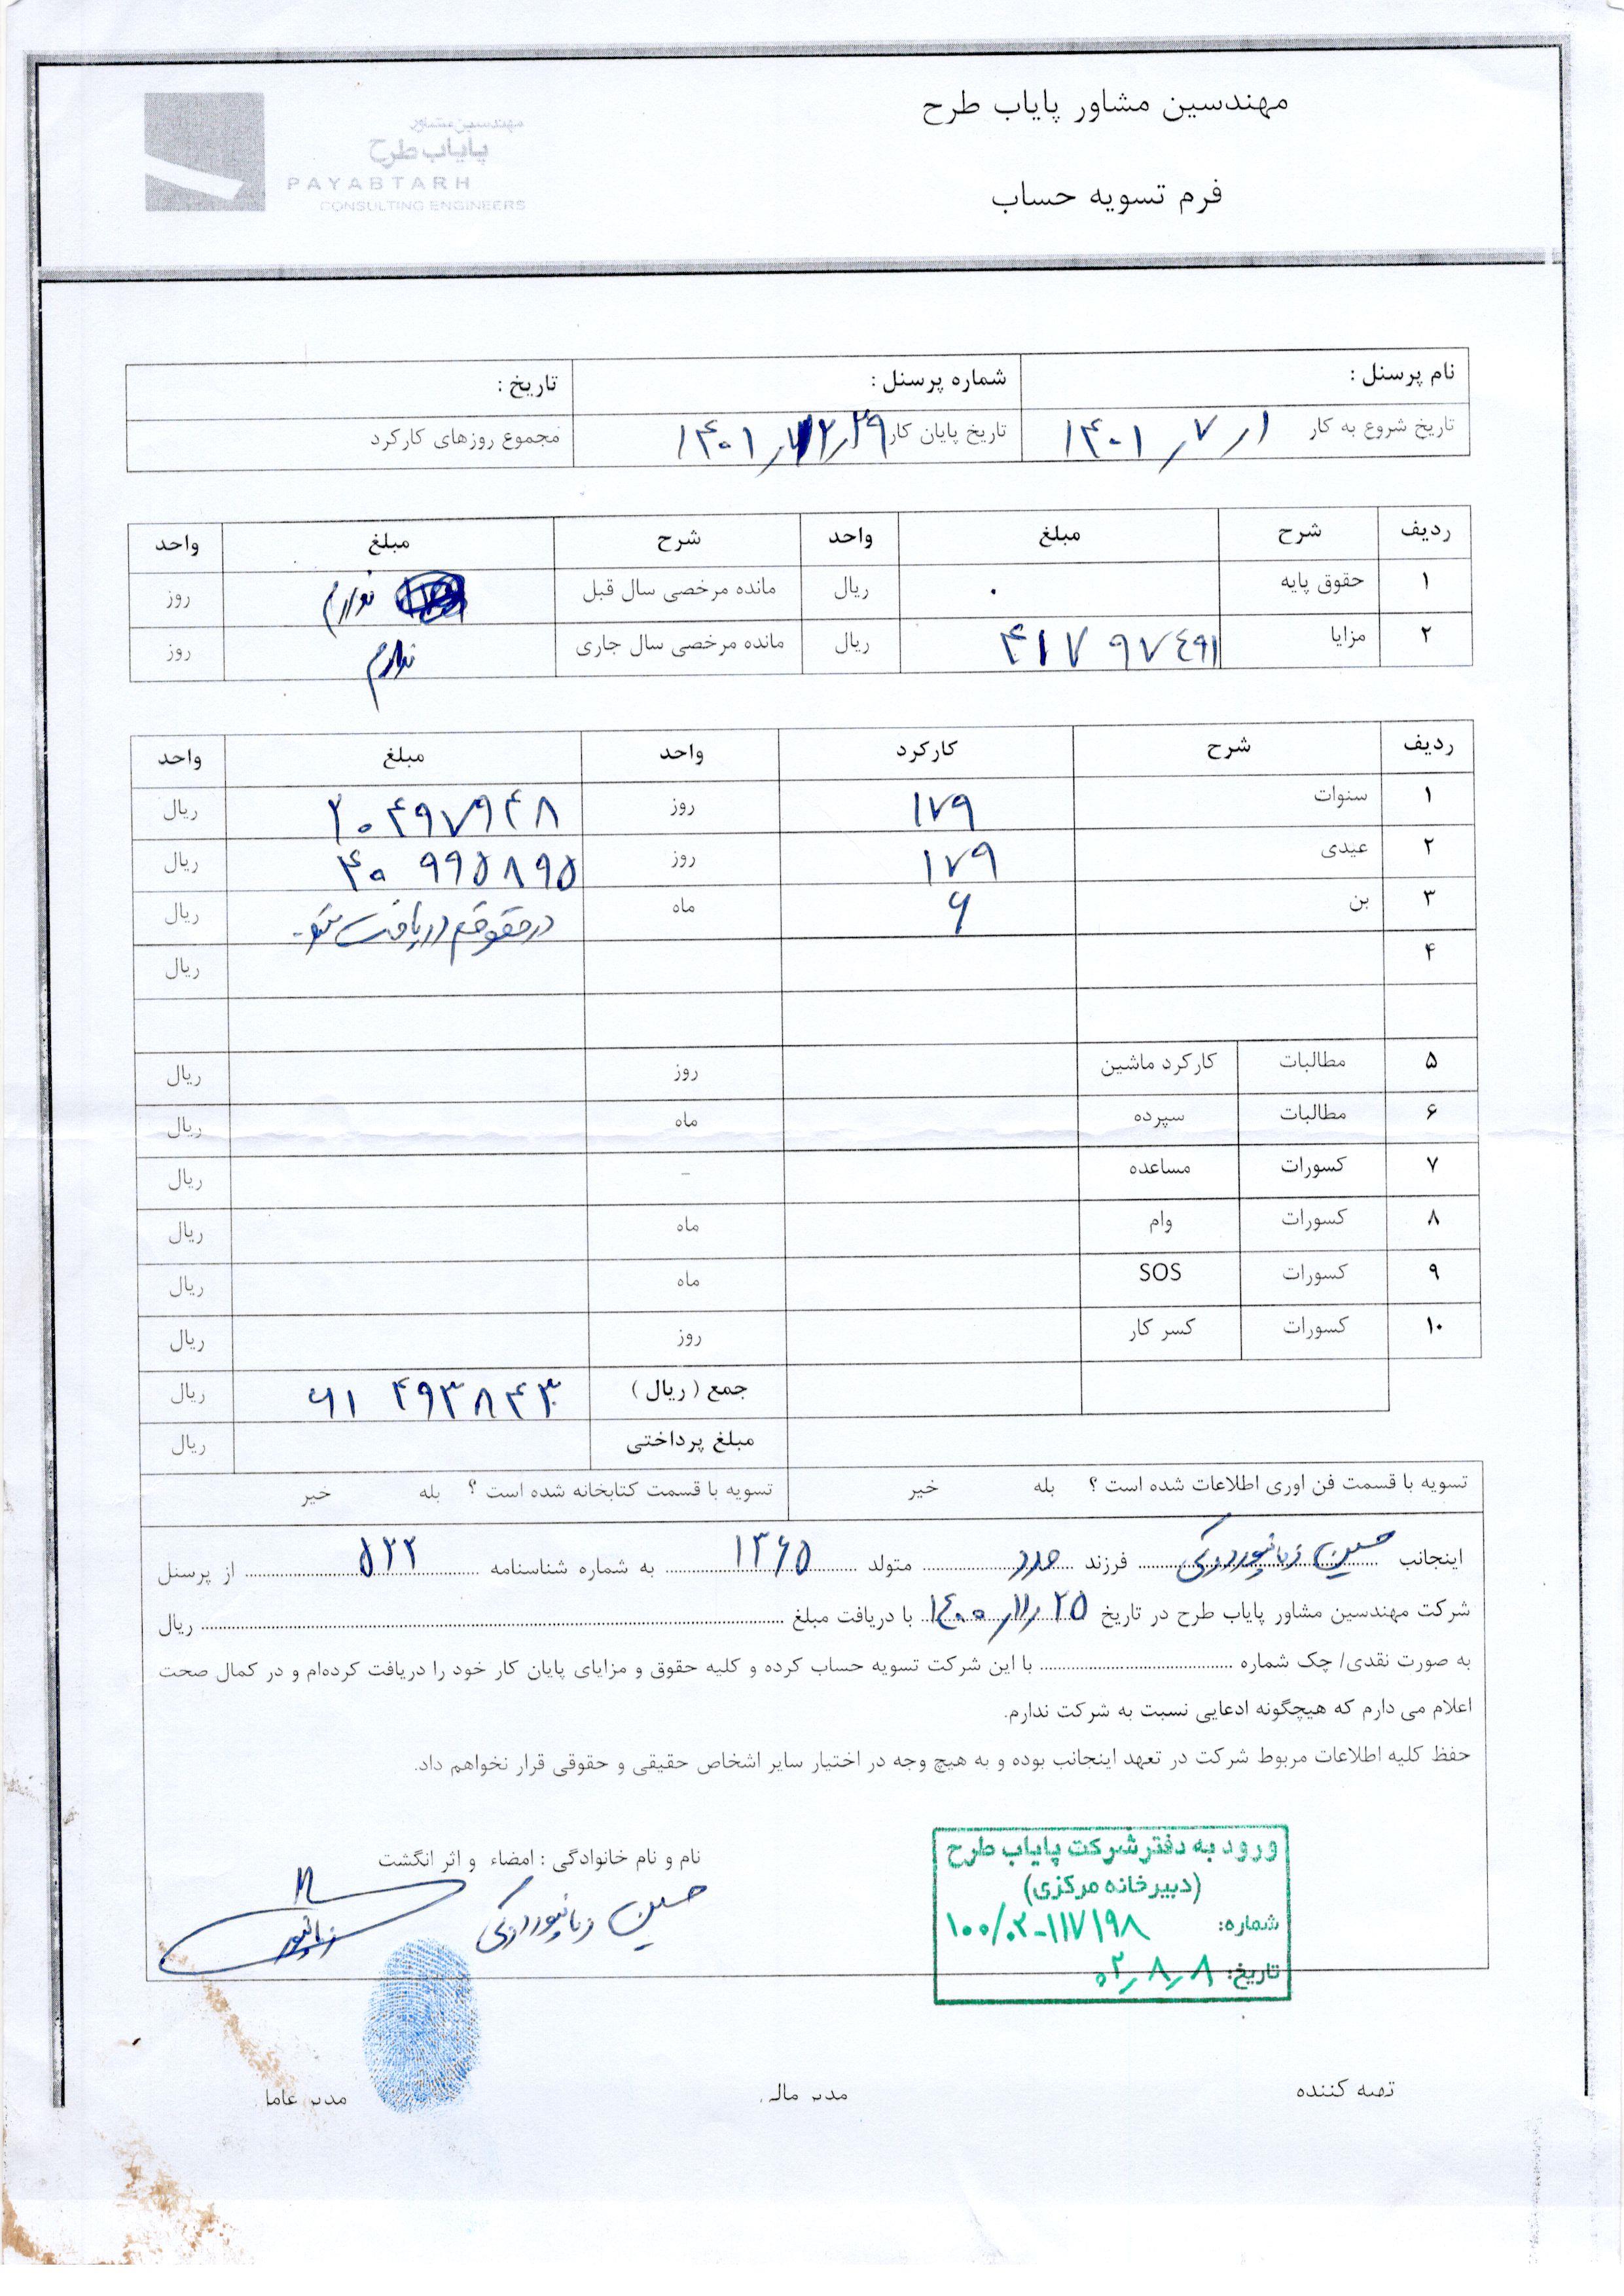 مهندسین مشاور پایاب طرح
فرم تسویه حساب
مهندسین مشاور
پایاب طرح
PAYABTARH
CONSULTING ENGINEERS
نام پرسنل : شماره پرسنل : تاریخ :
تاریخ شروع به کار ۱۴۰۱/۷/۱ تاریخ پایان کار ۱۴۰۱/۱۲/۲۹ مجموع روزهای کارکرد
ردیف شرح مبلغ واحد شرح مبلغ واحد
۱ حقوق پایه ۰ ریال مانده مرخصی سال قبل ندارم روز
۲ مزایا ۴۱۷۹۷۴۹۱ ریال مانده مرخصی سال جاری ندارم روز
ردیف شرح کارکرد واحد مبلغ واحد
۱ سنوات ۱۷۹ روز ۲۰۴۹۷۹۴۸ ریال
۲ عیدی ۱۷۹ روز ۴۰۹۹۵۸۹۵ ریال
۳ بن ۶ ماه در حقوقم دریافت ریال
۴ ریال
۵ مطالبات کارکرد ماشین روز ریال
۶ مطالبات سپرده ماه ریال
۷ کسورات مساعده - ریال
۸ کسورات وام ماه ریال
۹ کسورات SOS ماه ریال
۱۰ کسورات کسر کار روز ریال
جمع ( ریال ) ۶۱۴۹۳۸۴۳ ریال
مبلغ پرداختی ریال
تسویه با قسمت فن اوری اطلاعات شده است ؟ بله خیر تسویه با قسمت کتابخانه شده است ؟ بله خیر
اینجانب حسین فرزند متولد ۱۳۶۵ به شماره شناسنامه ۵۲۲ از پرسنل
شرکت مهندسین مشاور پایاب طرح در تاریخ ۱۴۰۰/۱۱/۲۵ با دریافت مبلغ ریال
به صورت نقدی/ چک شماره با این شرکت تسویه حساب کرده و کلیه حقوق و مزایای پایان کار خود را دریافت کرده‌ام و در کمال صحت
اعلام می دارم که هیچگونه ادعایی نسبت به شرکت ندارم.
حفظ کلیه اطلاعات مربوط شرکت در تعهد اینجانب بوده و به هیچ وجه در اختیار سایر اشخاص حقیقی و حقوقی قرار نخواهم داد.
نام و نام خانوادگی : امضاء و اثر انگشت
حسین
ورود به دفتر شرکت پایاب طرح
(دبیرخانه مرکزی)
شماره: ۱۰۰/۰۲-۱۱۷۱۹۸
تاریخ: ۰۲/۸/۸
تهیه کننده مدیر مالی مدیر عامل